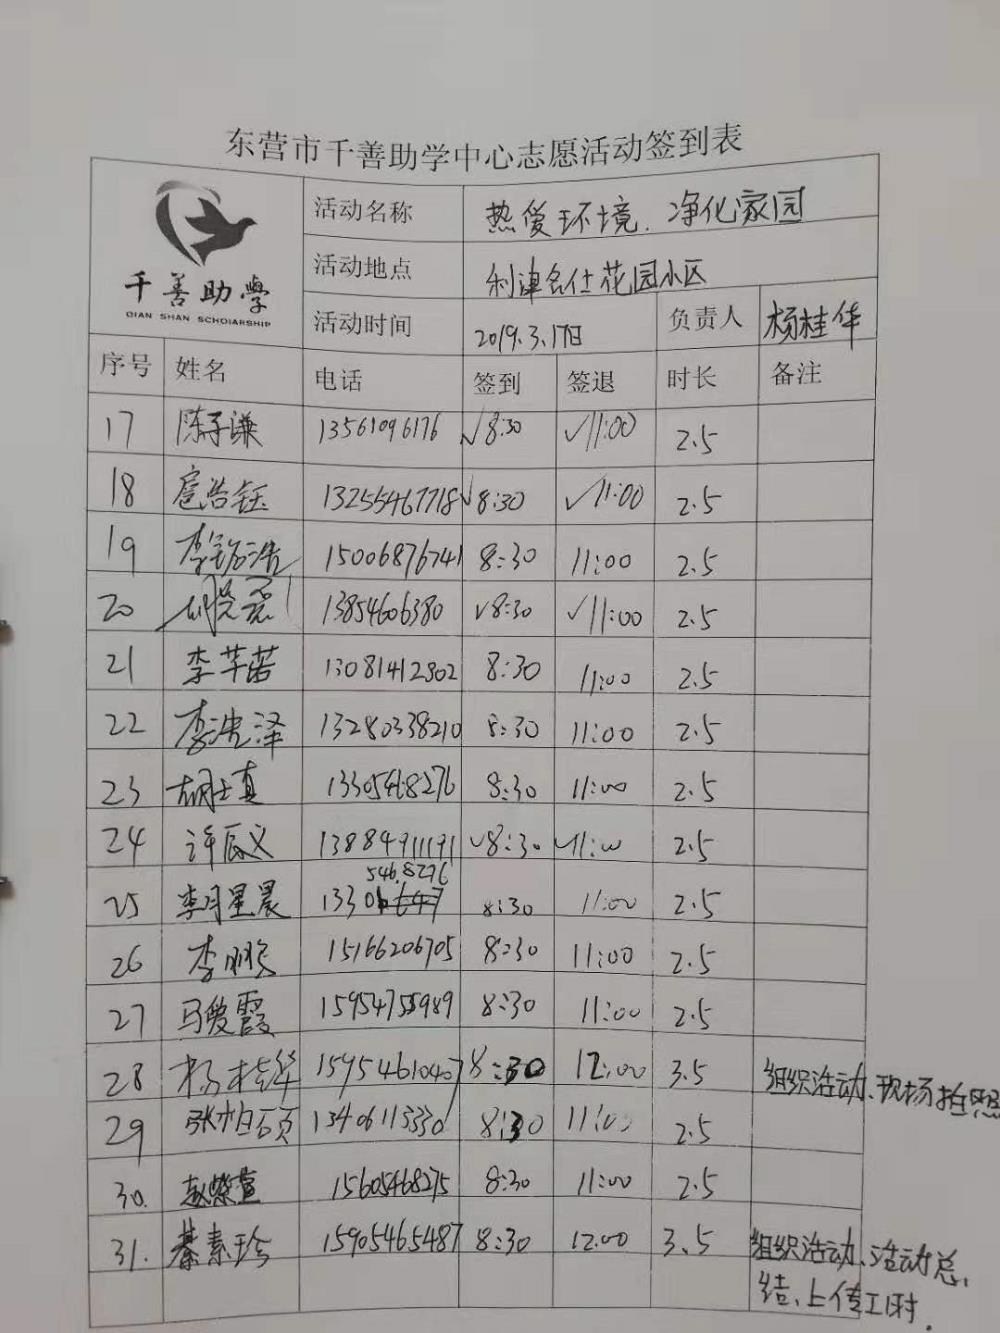 东营市千善助学中心志愿活动签到表
千善助学
QIAN SHAN SCHOIARSHIP
活动名称 热爱环境.净化家园
活动地点 利津名仕花园小区
活动时间 2019.3.17日 负责人 杨桂华
序号 姓名 电话 签到 签退 时长 备注
17 陈子谦 13561096176 √8:30 √11:00 2.5
18 扈浩钰 13255467718 √8:30 √11:00 2.5
19 李 浩 15006876741 8:30 11:00 2.5
20 胡 13854606380 √8:30 √11:00 2.5
21 李芊诺 13081412302 8:30 11:00 2.5
22 李浩泽 13280338210 8:30 11:00 2.5
23 胡士真 13305468276 8:30 11:00 2.5
24 许辰义 13884911191 √8:30 √11:00 2.5
546.8276
25 李玥星晨 1330 8:30 11:00 2.5
26 李 15166206705 8:30 11:00 2.5
27 马爱霞 15954755989 8:30 11:00 2.5
28 杨桂华 15954610407 8:30 12:00 3.5 组织活动、现场拍照
29 张柏硕 13406113330 8:30 11:00 2.5
30. 赵紫萱 15605468275 8:30 11:00 2.5
31. 綦素珍 15905465487 8:30 12:00 3.5 组织活动、活动总
结、上传工时.